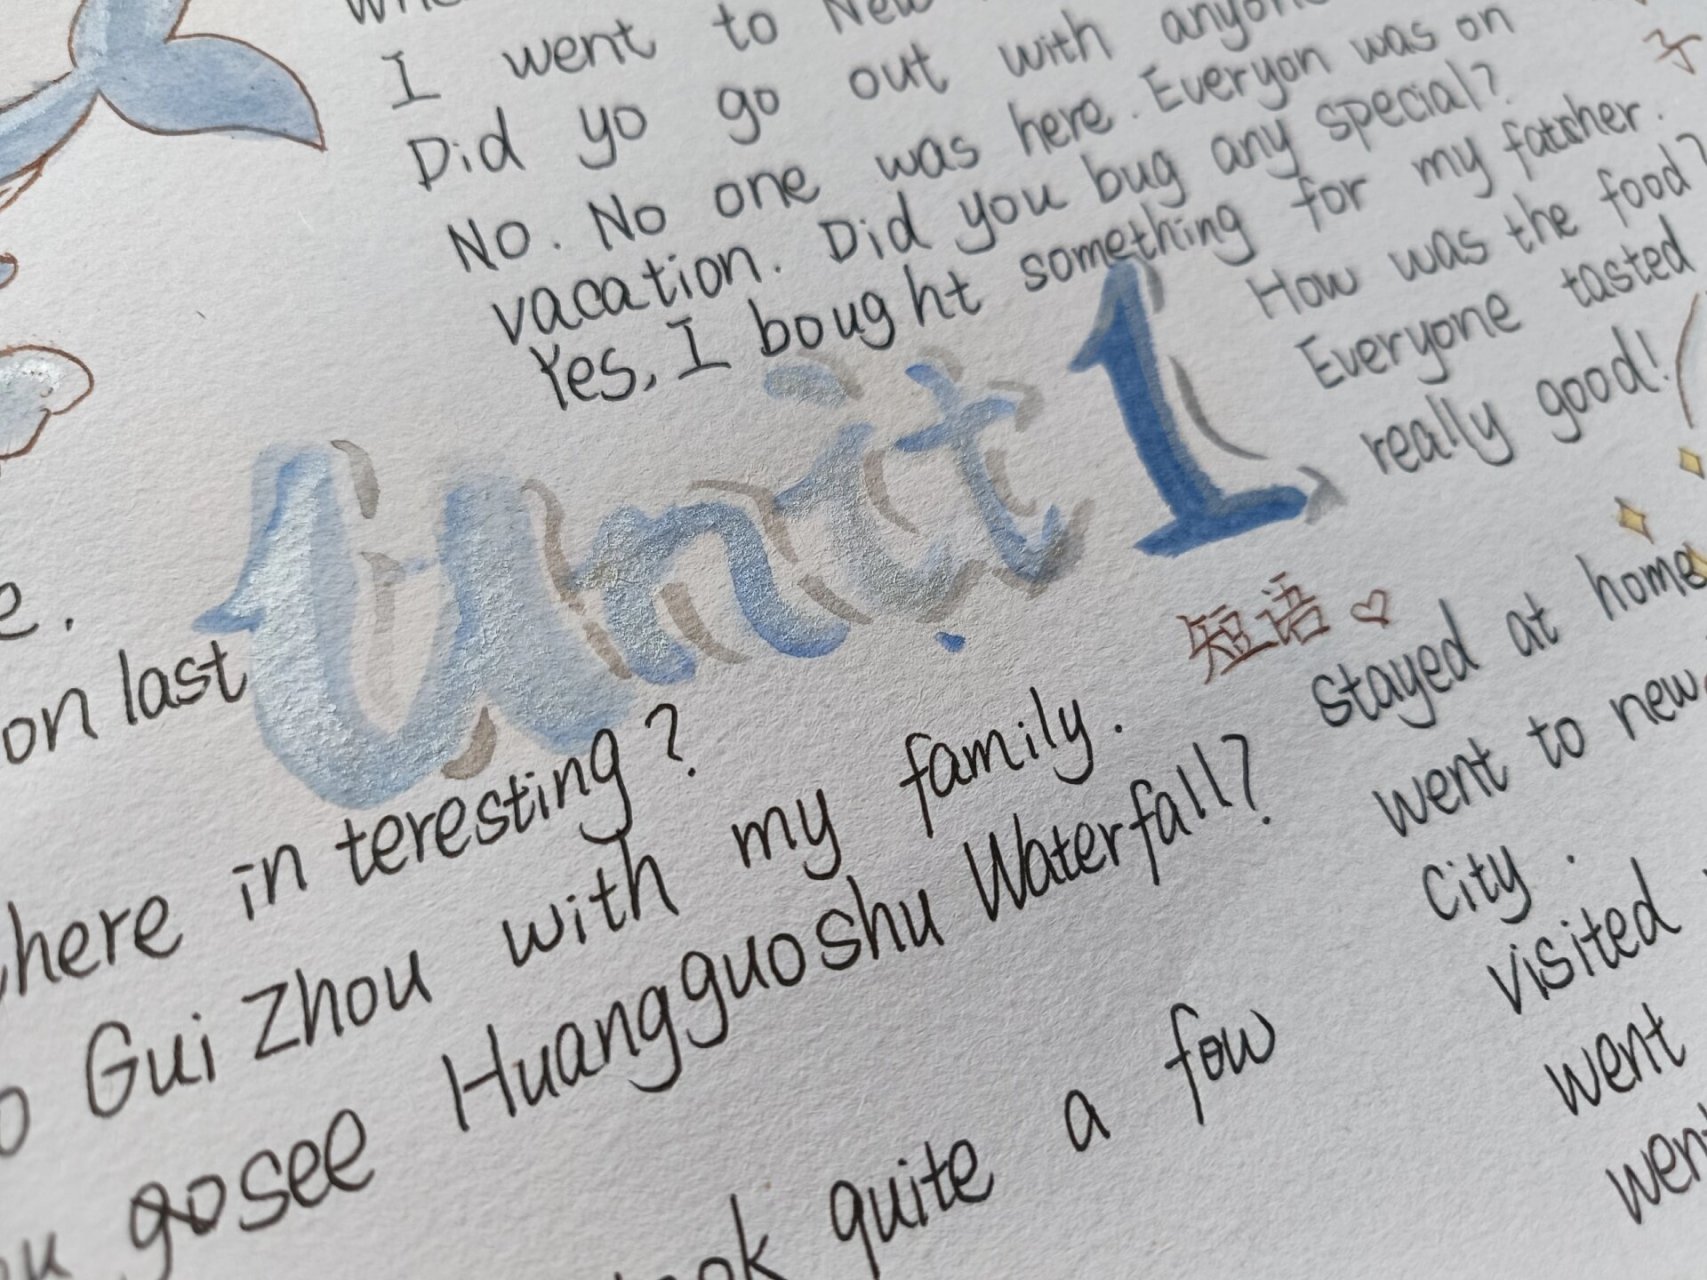 I went to New
Did yo go out with
No. No one was here. Everyon was on
vacation. Did you bug any special?
Yes, I bought something for my
How was the food?
Everyone tasted
really good!
Unit 1
e.
on last
here in teresting?
Gui Zhou with my family.
gosee Huangguoshu Waterfall?
quite a few
短语♡
stayed at home
went to new
city.
visited
went
子